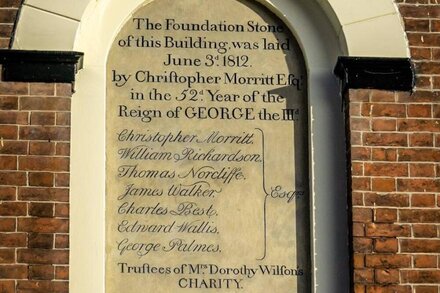 The Foundation Stone
of this Building, was laid
June 3d. 1812.
by Christopher Morritt Esqr.
in the 52d. Year of the
Reign of GEORGE the IIId.
Christopher Morritt.
William Richardson.
Thomas Norcliffe.
James Walker.
Charles Best.
Edward Wallis.
George Palmes.
Esqrs.
Trustees of Mrs. Dorothy Wilson's
CHARITY.